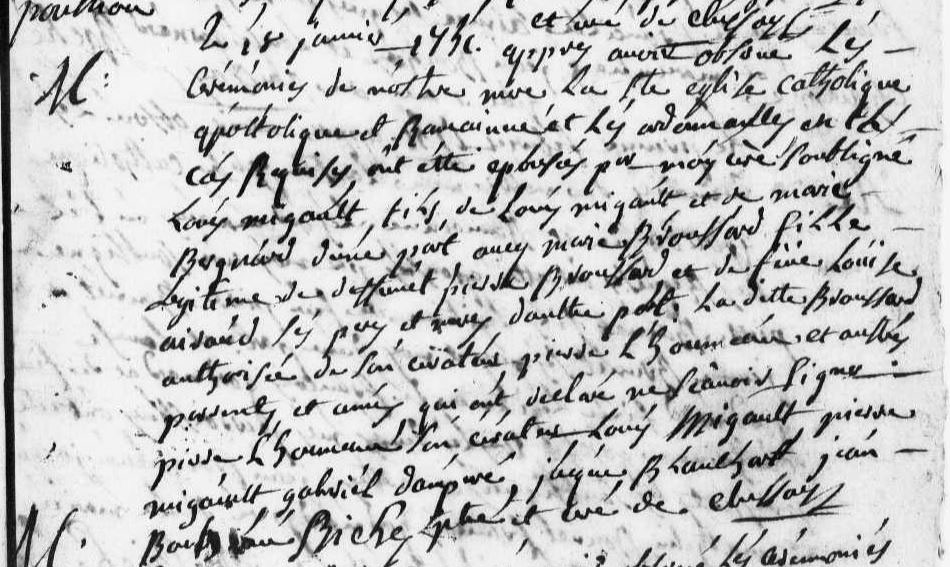 et curé de clussay
le 18 janvier appres avoir observé les
M:
ceremonies de nostre mere la ste eglise catholique
apostolique et Romainne et les ordonnances en tel
cas Requises ont etté epousés par moy curé soubsigné
Louis migault, fils, de Louis migault et de marie
Bernard d'une part avec marie Broussard fille
legitime de deffunct pierre Broussard et de feüe Louise
airaud ses peres et meres d'autre part. La ditte Broussard
authorisée de son curateur pierre L'houmeau et autres
parents et amis qui ont declaré ne sçavoir signer
pierre L'houmeau son curateur Louis Migault pierre
migault gabriel dampuré jaque Rhault jean
Riche ptre et curé de clussay
M:
les cérémonies